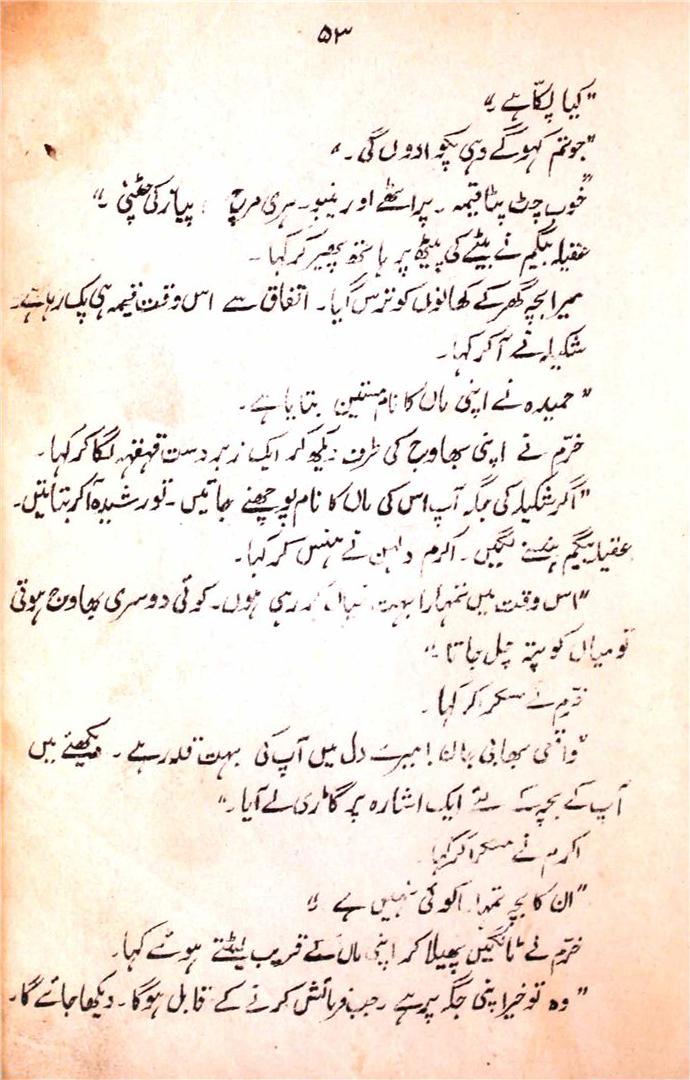 ۵۳
"کیا پکا ہے۔"
"جو تم کہو گے وہی پکوا دوں گی۔"
"خوب چٹ پٹا قیمہ۔ پراٹھے اور لیمو۔ ہری مرچ، پیاز کی چٹنی۔"
عقیلہ بیگم نے بیٹے کی پیٹھ پر ہاتھ پھیر کر کہا۔
میرا بچہ گھر کے کھانوں کو ترس گیا۔ اتفاق سے اس وقت قیمہ ہی پک رہا ہے۔
شکیلہ نے آ کر کہا۔
"حمیدہ نے اپنی ماں کا نام متین بتایا ہے۔
خرّم نے اپنی بھاوج کی طرف دیکھ کر ایک زبردست قہقہہ لگا کر کہا۔
"اگر شکیلہ کی جگہ آپ اس کی ماں کا نام پوچھنے جاتیں۔ تو رشیدہ آکر بتاتیں۔
عقیلہ بیگم ہنسنے لگیں۔ اکرم دلہن نے ہنس کر کہا۔
"اس وقت میں تمہارا بہت خیال کر رہی ہوں۔ کوئی دوسری بھاوج ہوتی
تو میاں کو پتہ چل جاتا۔"
خرّم نے مسکرا کر کہا۔
"واقعی بھابی جان! میرے دل میں آپ کی بہت قدر ہے۔ دیکھئے میں
آپ کے بچہ کے لئے ایک اشارہ پر گاڑی لے آیا۔"
اکرم نے مسکرا کر کہا۔
"ان کا بچہ تمہارا کوئی نہیں ہے۔"
خرّم نے ٹانگیں پھیلا کر اپنی ماں کے قریب لیٹتے ہوئے کہا۔
"وہ تو خیر اپنی جگہ پر ہے۔ جب فرمائش کرنے کے قابل ہوگا۔ دیکھا جائے گا۔